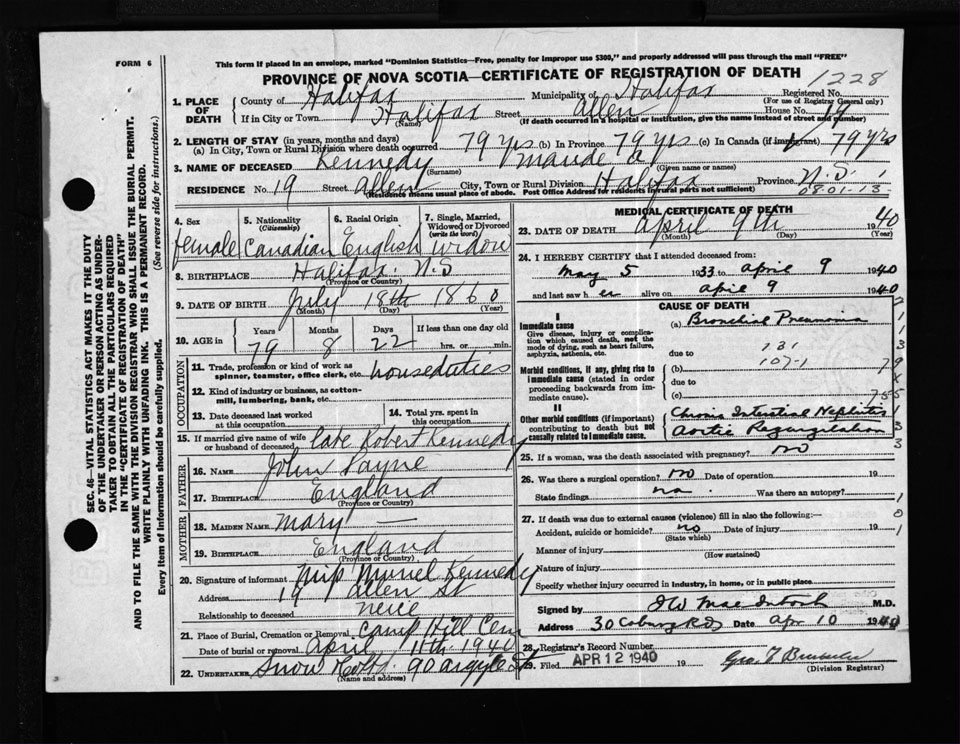 FORM 6
This form if placed in an envelope, marked "Dominion Statistics—Free, penalty for improper use $300," and properly addressed will pass through the mail "FREE"
PROVINCE OF NOVA SCOTIA—CERTIFICATE OF REGISTRATION OF DEATH
1228
1. PLACE OF DEATH
County of Halifax Municipality of Halifax Registered No.
(For use of Registrar General only)
If in City or Town Halifax Street Allen House No. 19
(Name) (If death occurred in a hospital or institution, give the name instead of street and number)
2. LENGTH OF STAY (in years, months and days)
(a) In City, Town or Rural Division where death occurred 79 yrs (b) In Province 79 yrs (c) In Canada (if immigrant) 79 yrs
3. NAME OF DECEASED Kennedy Maude A
(Surname) (Given name or names)
RESIDENCE No. 19 Street Allen City, Town or Rural Division Halifax Province N.S.
(Residence means usual place of abode. Post Office Address for residents in rural parts not sufficient)
08-01-13-
4. Sex female
5. Nationality (Citizenship) Canadian
6. Racial Origin English
7. Single, Married, Widowed or Divorced (write the word) widow
8. BIRTHPLACE Halifax N.S
(Province or Country)
9. DATE OF BIRTH July 18th 1860
(Month) (Day) (Year)
10. AGE in
Years Months Days If less than one day old
79 8 22 hrs. or min.
OCCUPATION
11. Trade, profession or kind of work as spinner, teamster, office clerk, etc. house duties
12. Kind of industry or business, as cotton-mill, lumbering, bank, etc.
13. Date deceased last worked at this occupation
14. Total yrs. spent in this occupation
15. If married give name of wife or husband of deceased late Robert Kennedy
FATHER
16. NAME John Payne
17. BIRTHPLACE England
(Province or Country)
MOTHER
18. MAIDEN NAME Mary —
19. BIRTHPLACE England
(Province or Country)
20. Signature of informant Miss Muriel Kennedy
Address 19 Allen St
Relationship to deceased neice
21. Place of Burial, Cremation or Removal Camp Hill Cem
Date of burial or removal April 11th 1940
22. UNDERTAKER Snow 90 Argyle St
(Name and address)
MEDICAL CERTIFICATE OF DEATH
23. DATE OF DEATH April 9th 1940
(Month) (Day) (Year)
24. I HEREBY CERTIFY that I attended deceased from:
May 5 1933 to April 9 1940
and last saw her alive on April 9 1940
CAUSE OF DEATH
I
Immediate cause
Give disease, injury or complication which caused death, not the mode of dying, such as heart failure, asphyxia, asthenia, etc.
(a) Bronchial Pneumonia
131
due to
107-1
Morbid conditions, if any, giving rise to immediate cause (stated in order proceeding backwards from immediate cause).
(b)
due to
(c)
II
Other morbid conditions (if important) contributing to death but not causally related to immediate cause.
Chronic Intersticial Nephritis
Aortic Regurgitation
25. If a woman, was the death associated with pregnancy? no
26. Was there a surgical operation? no Date of operation 19
State findings na. Was there an autopsy?
27. If death was due to external causes (violence) fill in also the following:—
Accident, suicide or homicide? no Date of injury 19
(State which)
Manner of injury
(How sustained)
Nature of injury
Specify whether injury occurred in industry, in home, or in public place
Signed by M.D.
Address 30 Coburg Rd Date Apr 10 1940
28. Registrar's Record Number
29. Filed APR 12 1940 19 Geo. F
(Division Registrar)
SEC. 46—VITAL STATISTICS ACT MAKES IT THE DUTY
OF THE UNDERTAKER OR PERSON ACTING AS UNDER-
TAKER TO OBTAIN ALL THE PARTICULARS REQUIRED
IN THE "CERTIFICATE OF REGISTRATION OF DEATH"
AND TO FILE THE SAME WITH THE DIVISION REGISTRAR WHO SHALL ISSUE THE BURIAL PERMIT.
WRITE PLAINLY WITH UNFADING INK. THIS IS A PERMANENT RECORD.
Every item of Information should be carefully supplied. (See reverse side for instructions.)